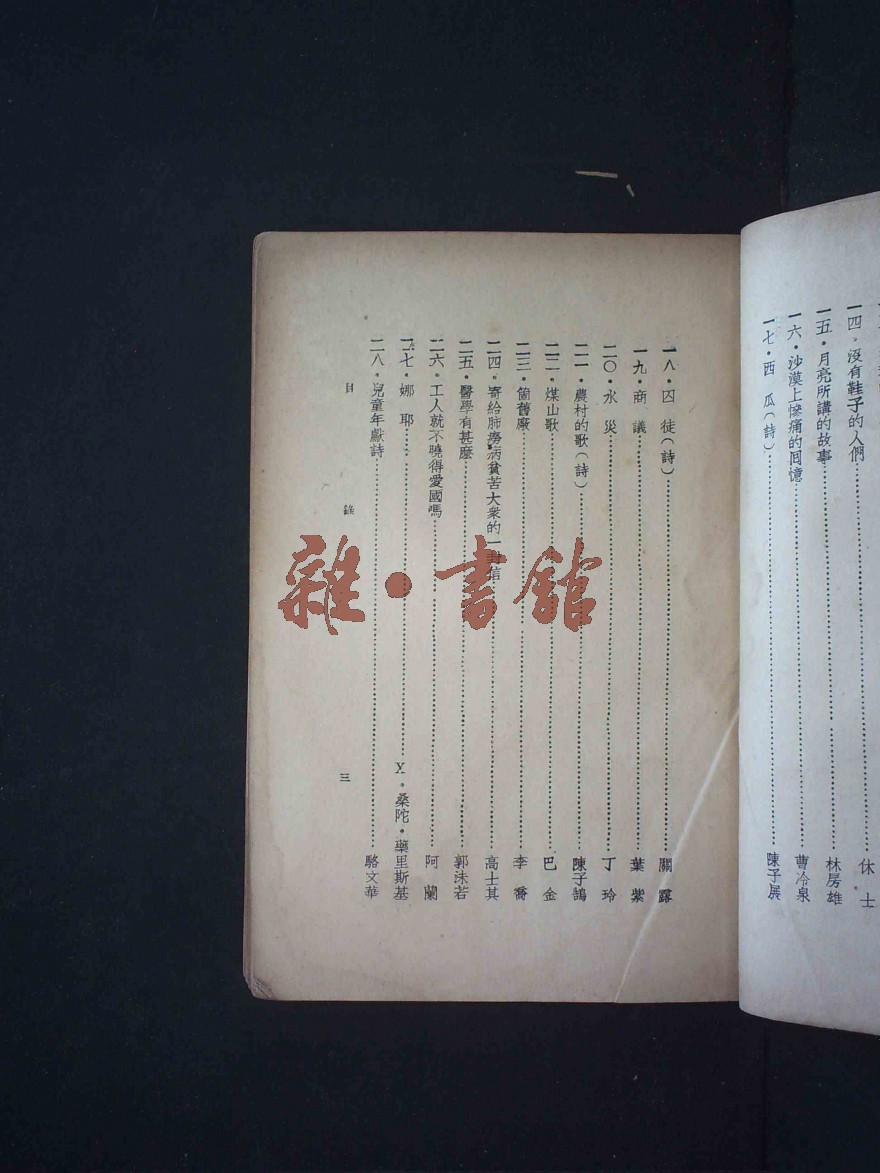 一四・沒有鞋子的人們……休士
一五・月亮所講的故事……林房雄
一六・沙漠上慘痛的囘憶……曹冷泉
一七・西瓜(詩)……陳子展
一八・囚徒(詩)……關露
一九・商議……葉紫
二〇・水災……丁玲
二一・農村的歌(詩)……陳子鵠
二二・煤山歌……巴金
二三・箇舊廠……李喬
二四・寄給肺癆病貧苦大衆的一封信……高士其
二五・醫學有甚麽……郭沫若
二六・工人就不曉得愛國嗎……阿蘭
二七・娜耶……X・桑陀・藥里斯基
二八・兒童年獻詩……駱文華
目錄
三
雜・書館